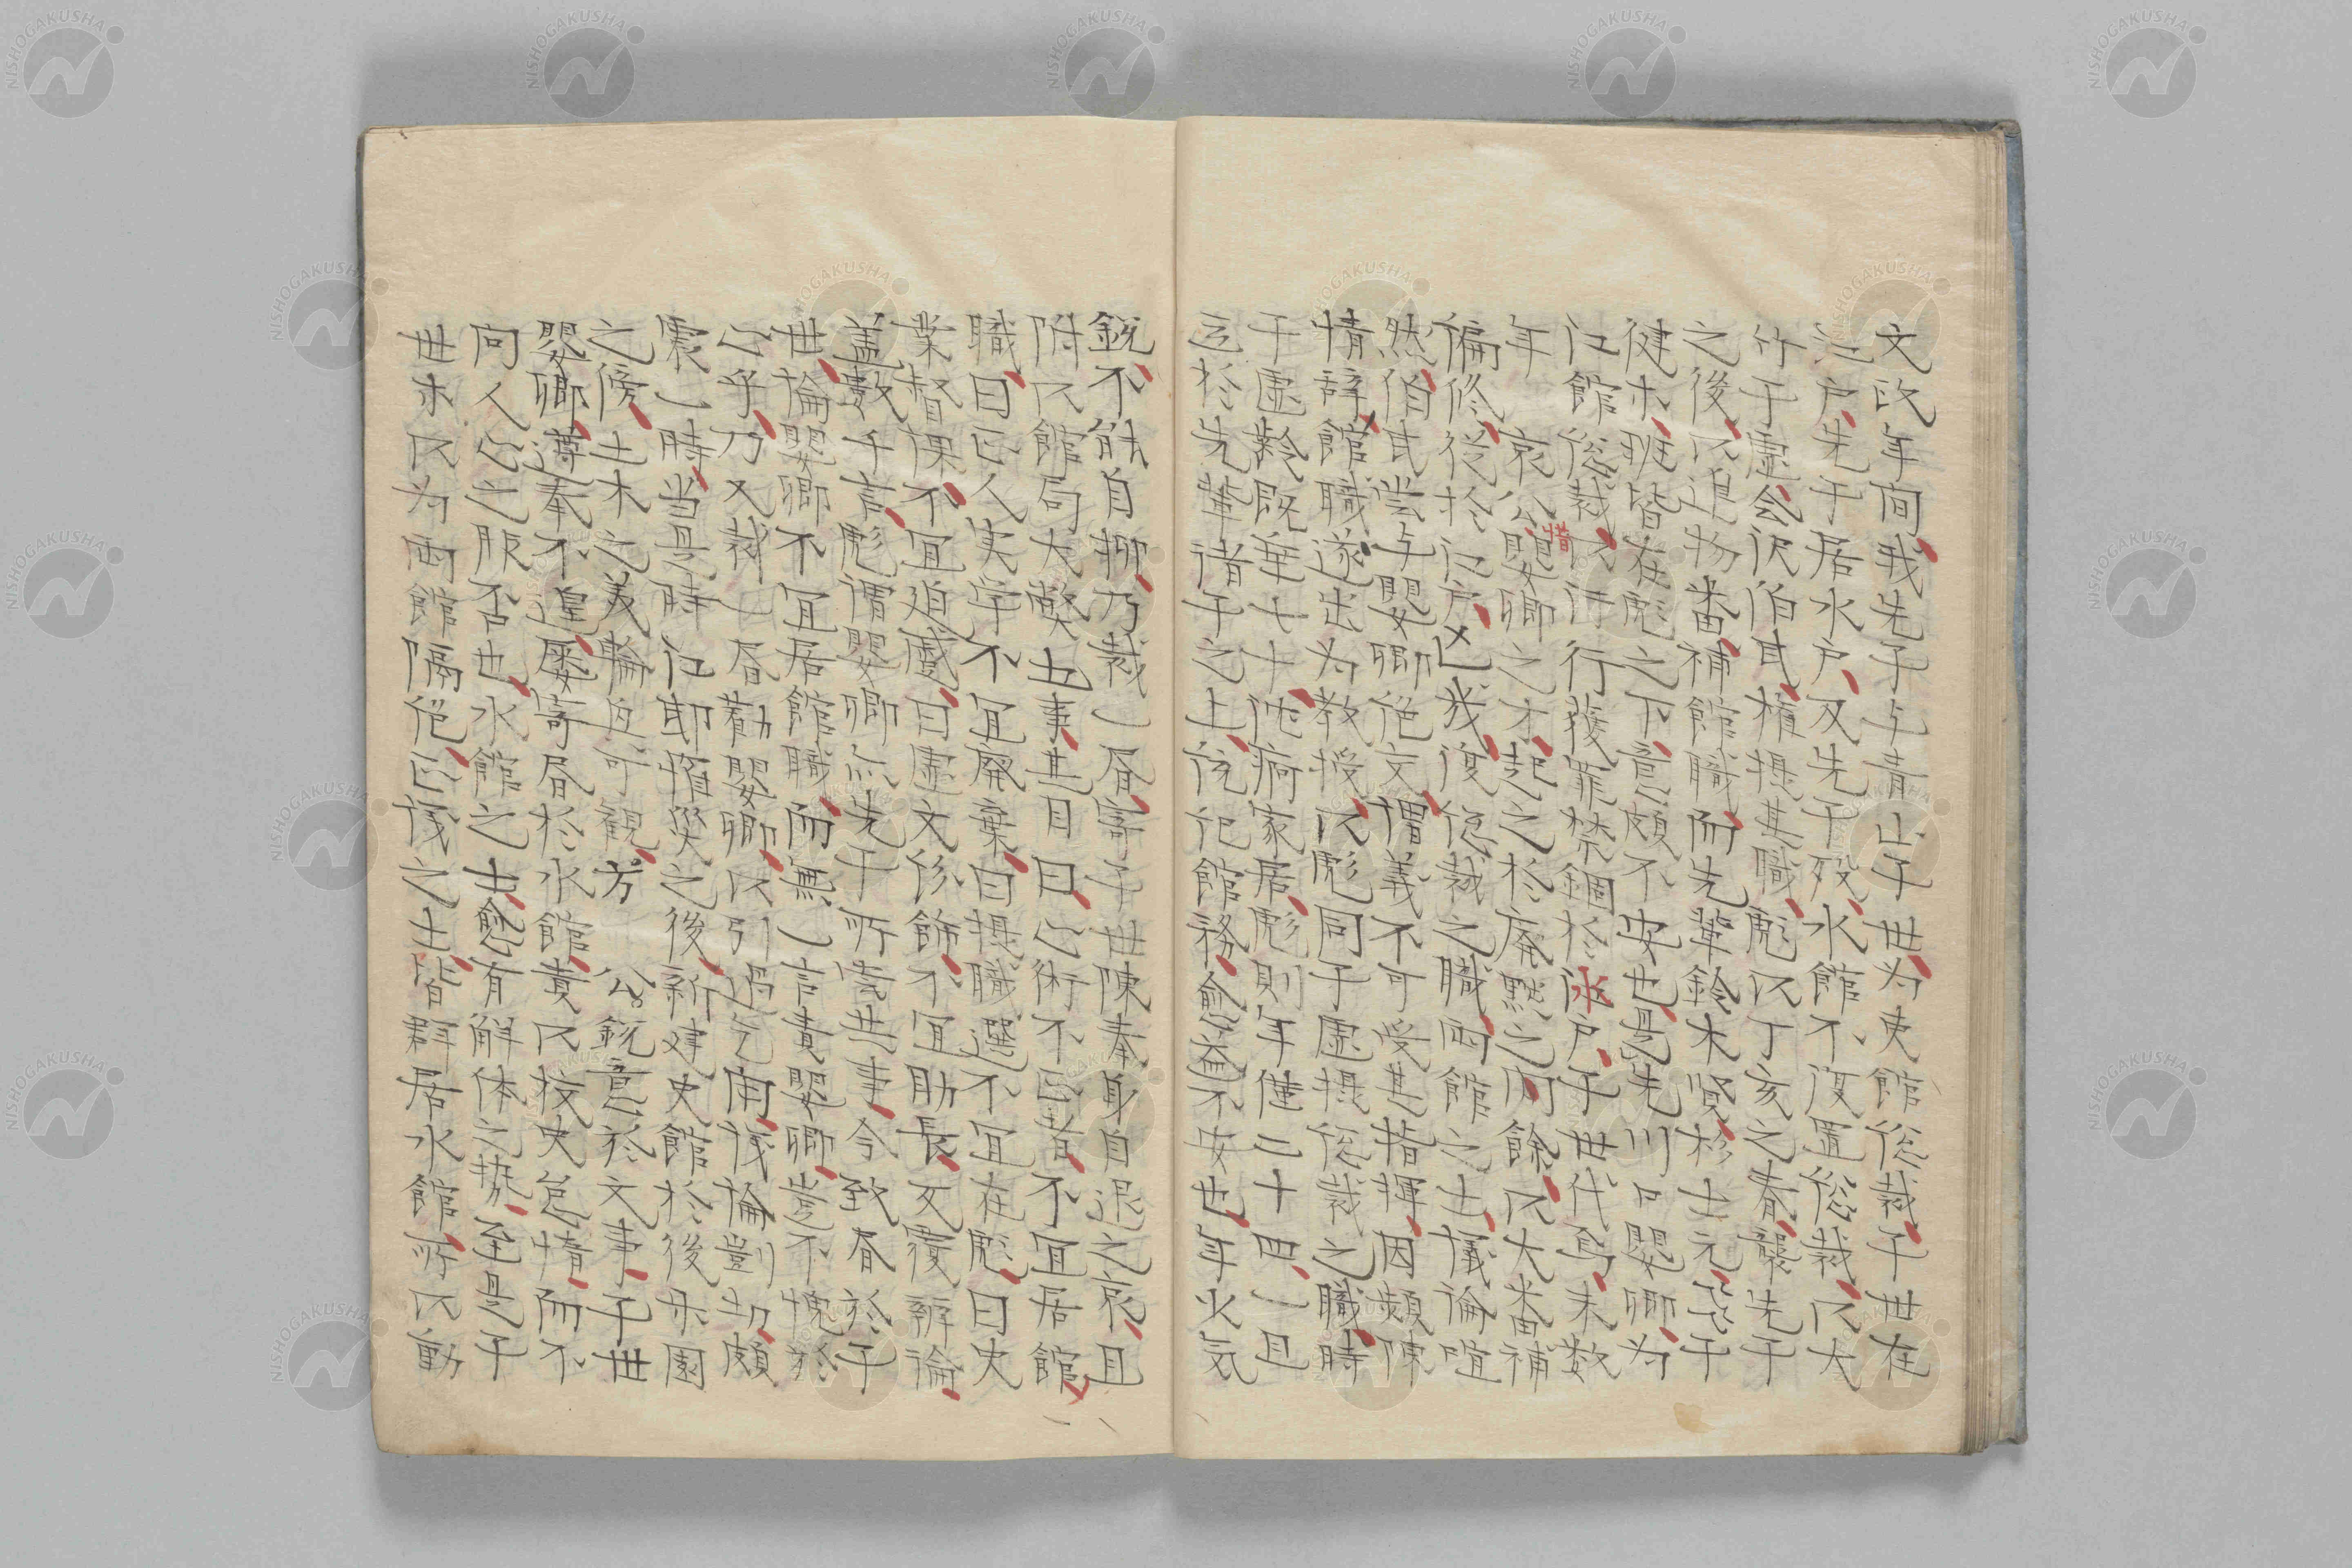 文政年間我先子与青山子世为史館総裁子世在
江戸先子居水戸及先子殁水館不復置総裁以大
竹子虚会沢伯民権摂其職彪以丁亥之春襲先子
之後以進物番補館職而先輩鈴木賢杉士元飛子
健木班皆在彪之下意頗不安也是先川口嬰卿为
江館総裁以汙行獲罪禁錮於水戸子世代焉未数
年 哀公惜嬰卿之才起之於廃黙之間餘以大番補
偏修従於江戸迄我復総裁之職両館之士議論喧
然伯民嘗与嬰卿絶交謂義不可受其指揮因頻陳
情辞館職遂出为教授以彪同子虚摂総裁之職時
子虚齢既垂七十恒病家居彪則年僅二十四一旦
立於先輩諸子之上統他館務愈益不安也年少気
鋭不能自抑乃裁一書寄子世陳奉身自退之哀且
附以館局大弊五事其目曰心術不正者不宜居館
職曰正人実学不宜廃棄曰摂職選不宜在彪曰史
業督課不宜迫蹙曰虚文修飾不宜助長反覆辨論
盖数千言彪謂嬰卿無先子所寄世事今致書於子
世論嬰卿不宜居館職而無一言責嬰卿豈不愧於
心乎乃又裁一書勧嬰卿以引過乞罪議論剴切頗
震一時当是時江邸惟災之後新建史館於後楽園
之傍土木之美輪奐可観方 公鋭意於文事子世
嬰卿遵奉不遑屡寄書於水館責以校史怠惰而不
向人心之服否也水館之士愈有解体之勢至是子
世亦以为両館隔绝正議之士皆群居水館所以動